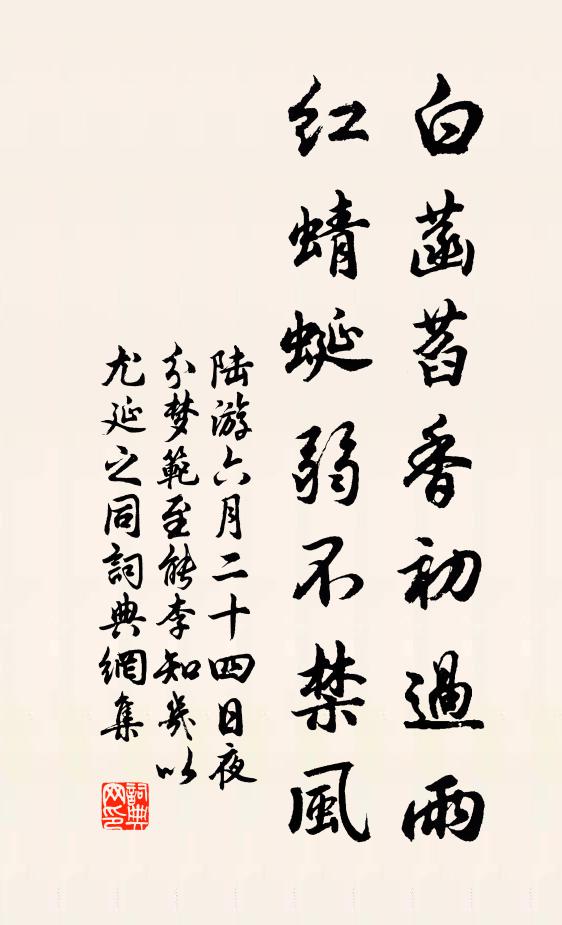 白菡萏香初過雨
紅蜻蜓弱不禁風
陸游六月二十四日夜
分夢範至能李知幾以
尤延之同詞典網集
詞典网印